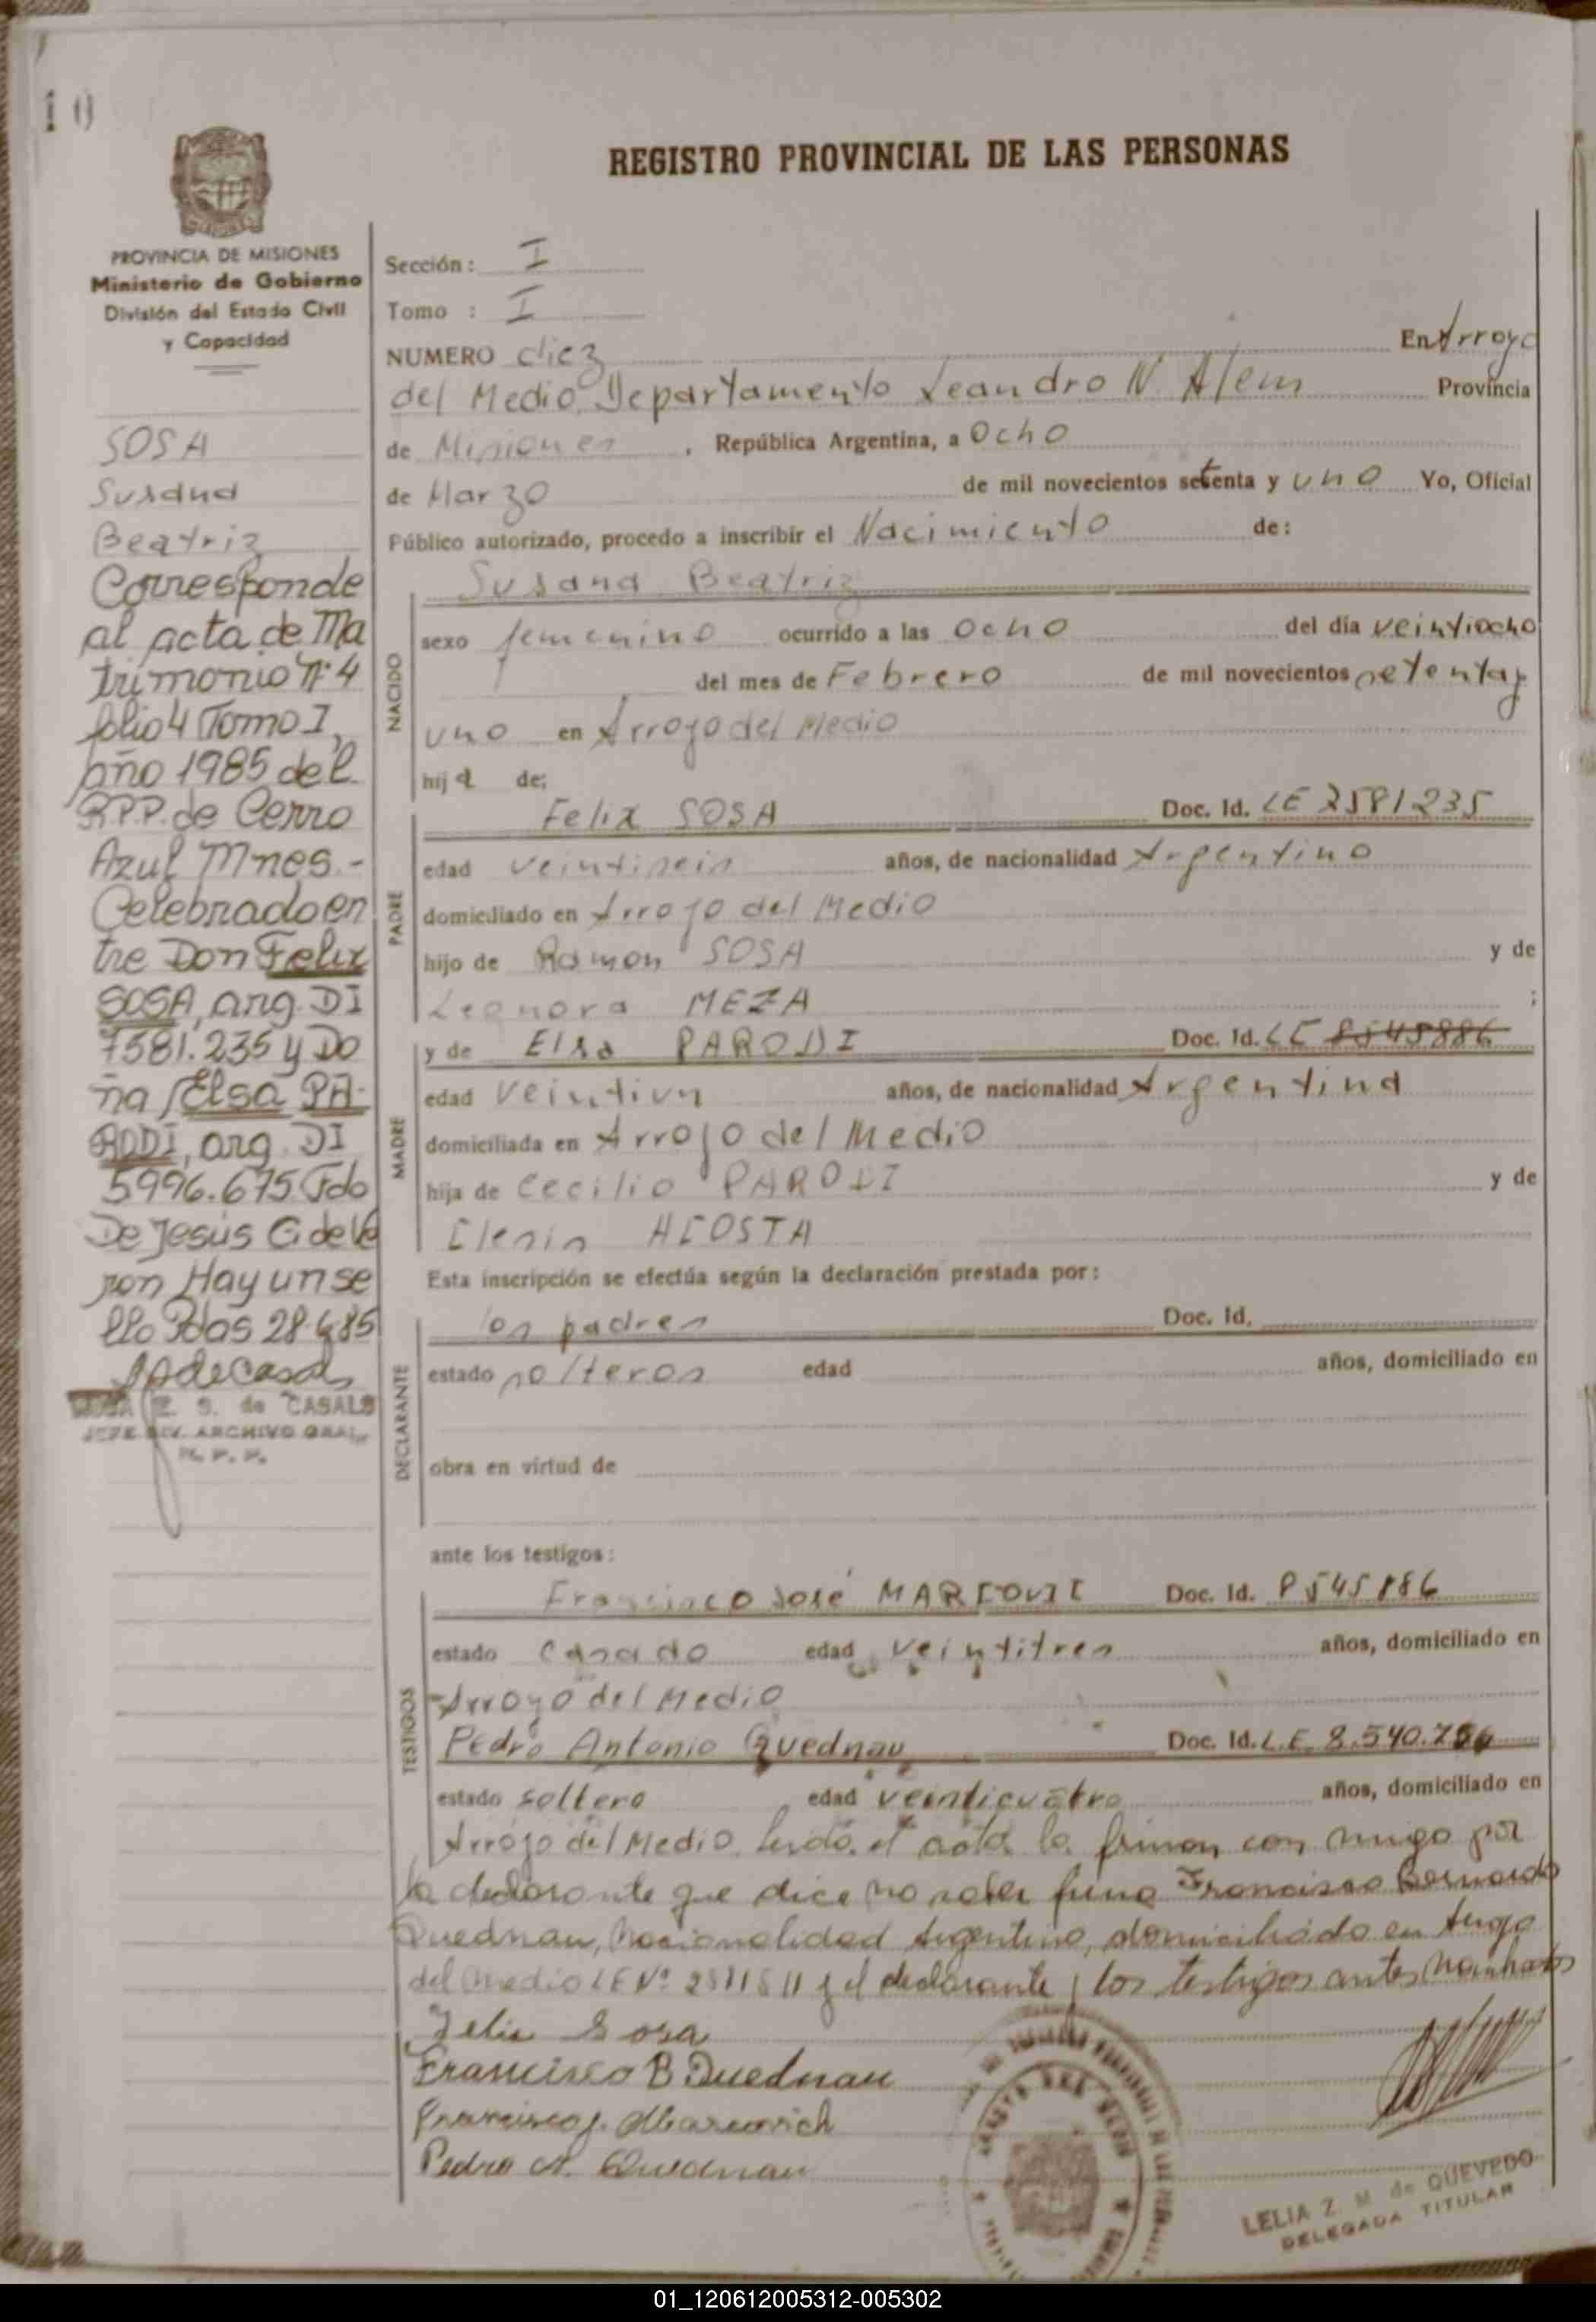 10
REGISTRO PROVINCIAL DE LAS PERSONAS
PROVINCIA DE MISIONES
Ministerio de Gobierno
División del Estado Civil
y Capacidad
SOSA
Susana
Beatriz
Corresponde
al acta de Ma
trimonio Nº 4
folio 4 Tomo I,
año 1985 del
R.P.P. de Cerro
Azul Mnes.-
Celebrado en
tre Don Felix
SOSA, arg. DI
7581.235 y Do
ña Elsa PA-
RODI, arg. DI
5996.675 Fdo
De Jesús G de Ve
ron Hay un se
llo Pdas 28 85
de CASALS
JEFE DIV. ARCHIVO GRAL.
R. P. P.
Sección: I
Tomo : I
NUMERO diez En Arroyo
del Medio, Departamento Leandro N. Alem Provincia
de Misiones , República Argentina, a Ocho
de Marzo de mil novecientos setenta y uno Yo, Oficial
Público autorizado, procedo a inscribir el Nacimiento de:
NACIDO
Susana Beatriz
sexo femenino ocurrido a las Ocho del día veintiocho
del mes de Febrero de mil novecientos setenta y
uno en Arroyo del Medio
hija de;
PADRE
Felix SOSA Doc. Id. LE 7581235
edad veintiseis años, de nacionalidad Argentino
domiciliado en Arroyo del Medio
hijo de Ramon SOSA y de
Leonora MEZA ;
MADRE
y de Elsa PARODI Doc. Id. LE 8545886
edad veintiun años, de nacionalidad Argentina
domiciliada en Arroyo del Medio
hija de Cecilio PARODI y de
ACOSTA
Esta inscripción se efectúa según la declaración prestada por:
DECLARANTE
los padres Doc. Id.
estado solteros edad años, domiciliado en
obra en virtud de
ante los testigos:
TESTIGOS
Francisco José MARCOVIC Doc. Id. 8545886
estado Casado edad veintitres años, domiciliado en
Arroyo del Medio
Pedro Antonio Quednau Doc. Id. L.E. 8.540.7
estado soltero edad veinticuatro años, domiciliado en
Arroyo del Medio. Leida el acta la firman con migo por
la declarante que dice no saber firma Francisco Bernardo
Quednau, nacionalidad Argentino, domiciliado en Arroyo
del Medio LE Nº y el declarante y los testigos antes nombrados
Felix Sosa
Francisco B Quednau
Francisco J. Marcovich
Pedro A. Quednau
LELIA Z. M de QUEVEDO
DELEGADA TITULAR
01_120612005312-005302